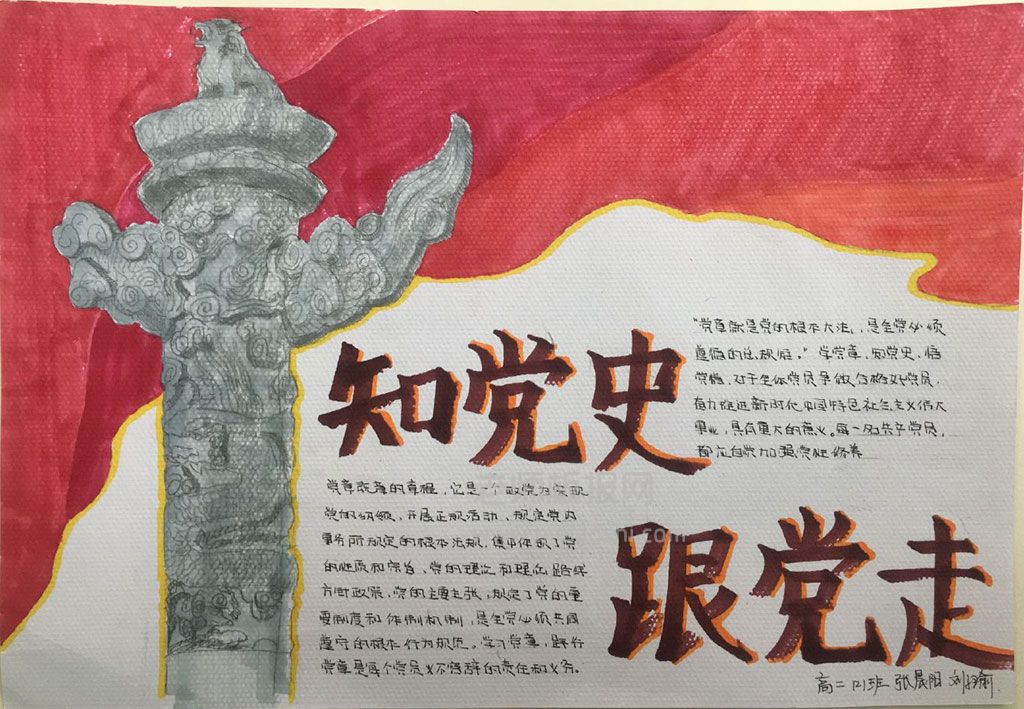 知党史
"党章就是党的根本大法,是全党必须
遵循的总规矩。"学党章,知党史,悟
党性,对于全体党员争做合格好党员,
奋力推进新时代中国特色社会主义伟大
事业,具有重大的意义。每一名共产党员,
都应自觉加强党性修养
党章既党的章程,它是一个政党为实现
党的纲领、开展正规活动、规定党内
事务所规定的根本法规,集中体现了党
的性质和宗旨、党的理论和理论路线
方针政策、党的主要主张,规定了党的重
要制度和体制机制,是全党必须共同
遵守的根本行为规范。学习党章,践行
党章是每个党员义不容辞的责任和义务。
跟党走
高二 班 张晨阳 刘
报网
ni.com